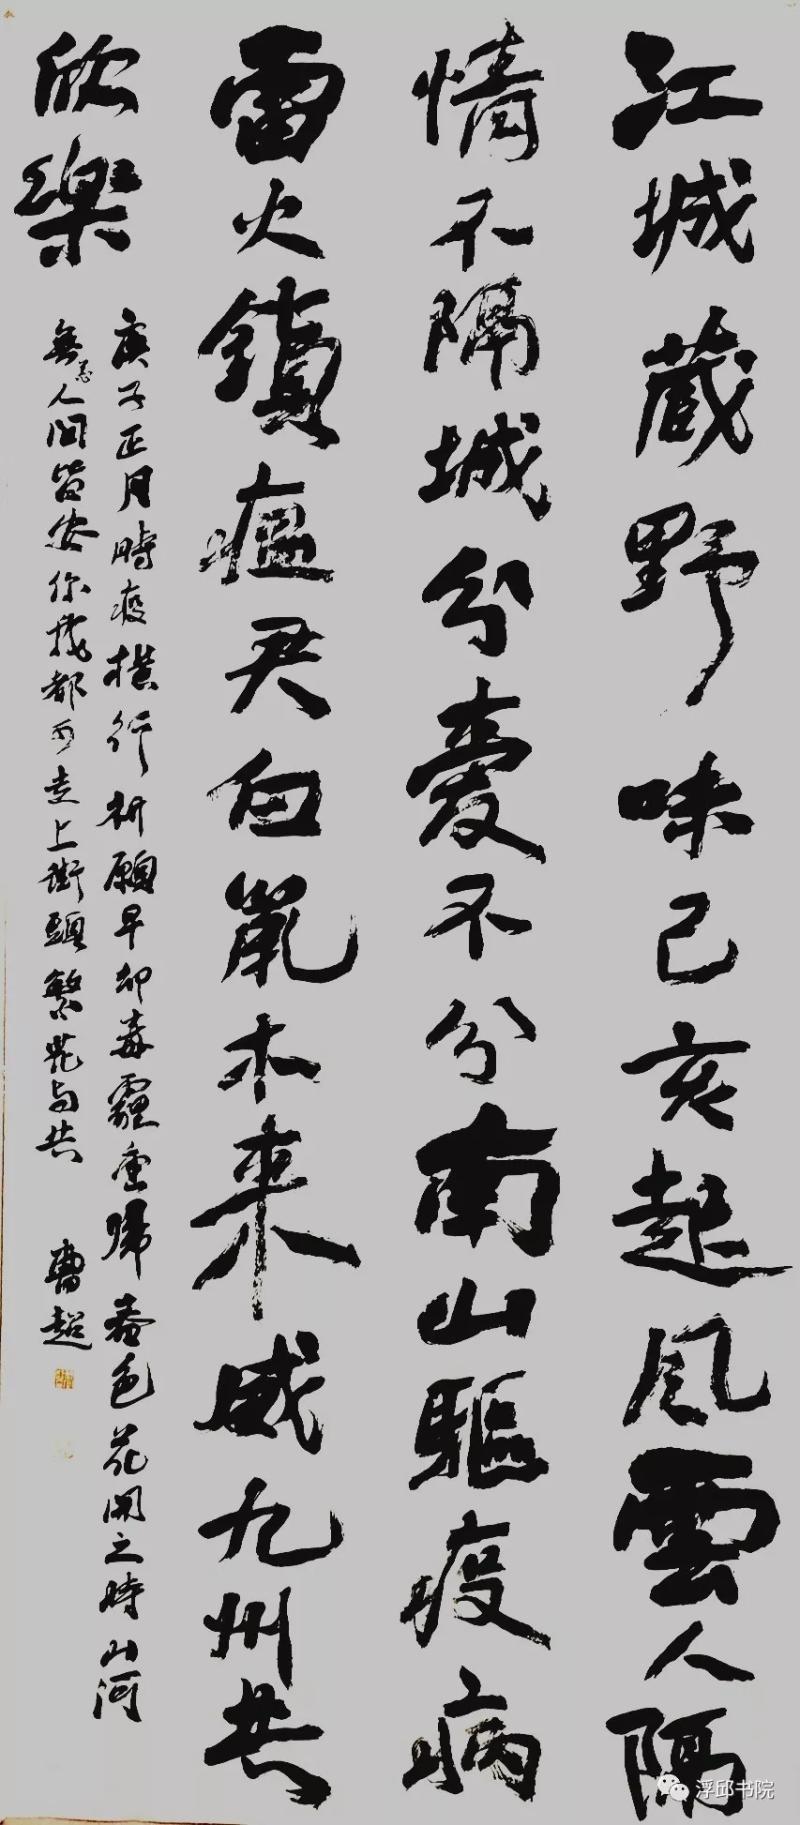 江城藏野味己亥起风雲人隔
情不隔城分愛不分南山驅疫病
雷火鎮瘟君白鼠木来威九州共
欣樂
庚子正月時疫横行祈願早却毒霾重歸春色花開之時山河
無恙人間皆安你我都可走上街頭繁花与共
曹超
浮邱书院